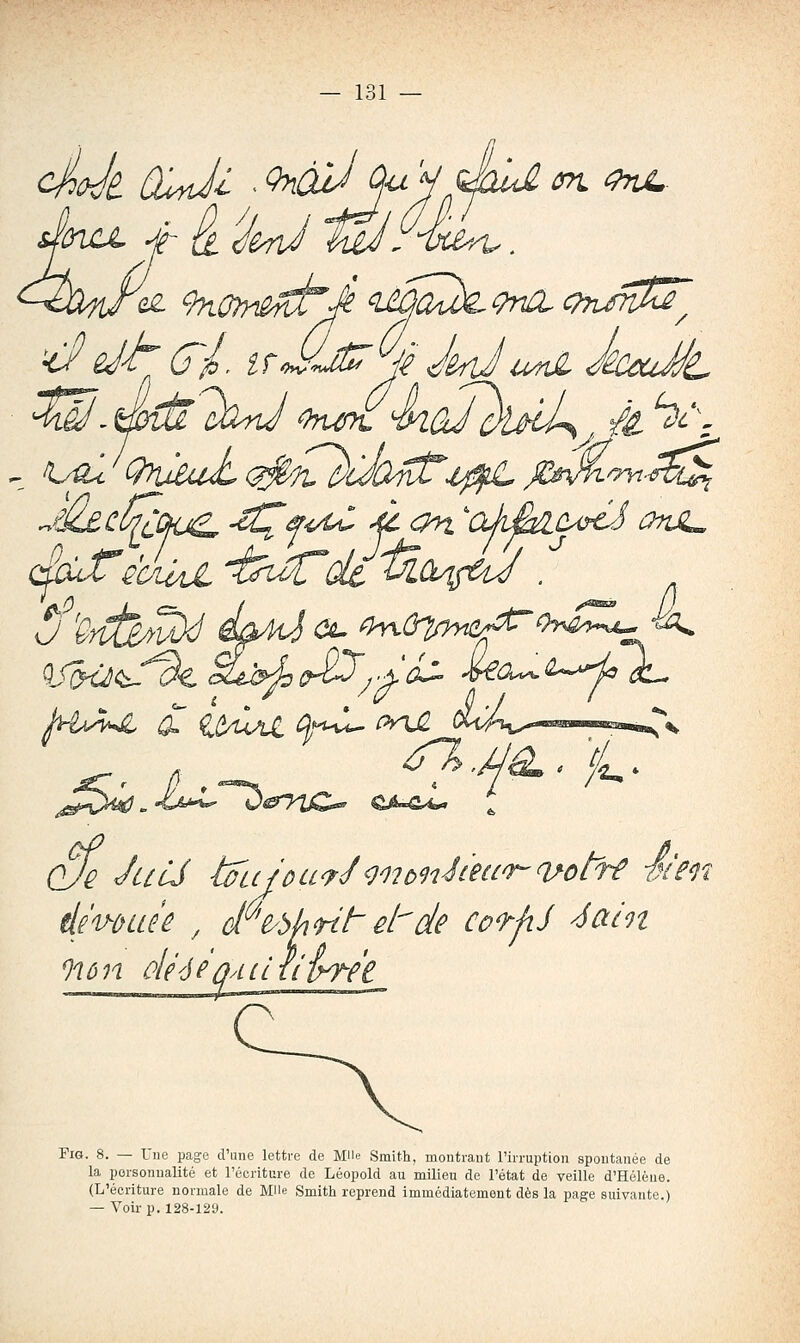 — 131 —
chose ainsi . mais qu'y faire on me
force je le sens très. bien.
Dans ce moment je regarde ma montre,
il est 6 h. je sens une secousse
très. forte dans mon bras droit, je
mieux en disant que
électrique et qui je m'aperçois me
fait écrire tout de travers .
J'entends dans ce moment même la
voix de Léopold, j'ai beaucoup de
peine à écrire qui me dit
6 h. 42. 1/2.
Dis. lui donc ceci :
Je suis toujours monsieur votre bien
dévouée , d'esprit et de corps sain
non déséquilibrée
FIG. 8. — Une page d'une lettre de Mlle Smith, montrant l'irruption spontanée de
la personnalité et l'écriture de Léopold au milieu de l'état de veille d'Hélène.
(L'écriture normale de Mlle Smith reprend immédiatement dès la page suivante.)
— Voir p. 128-129.